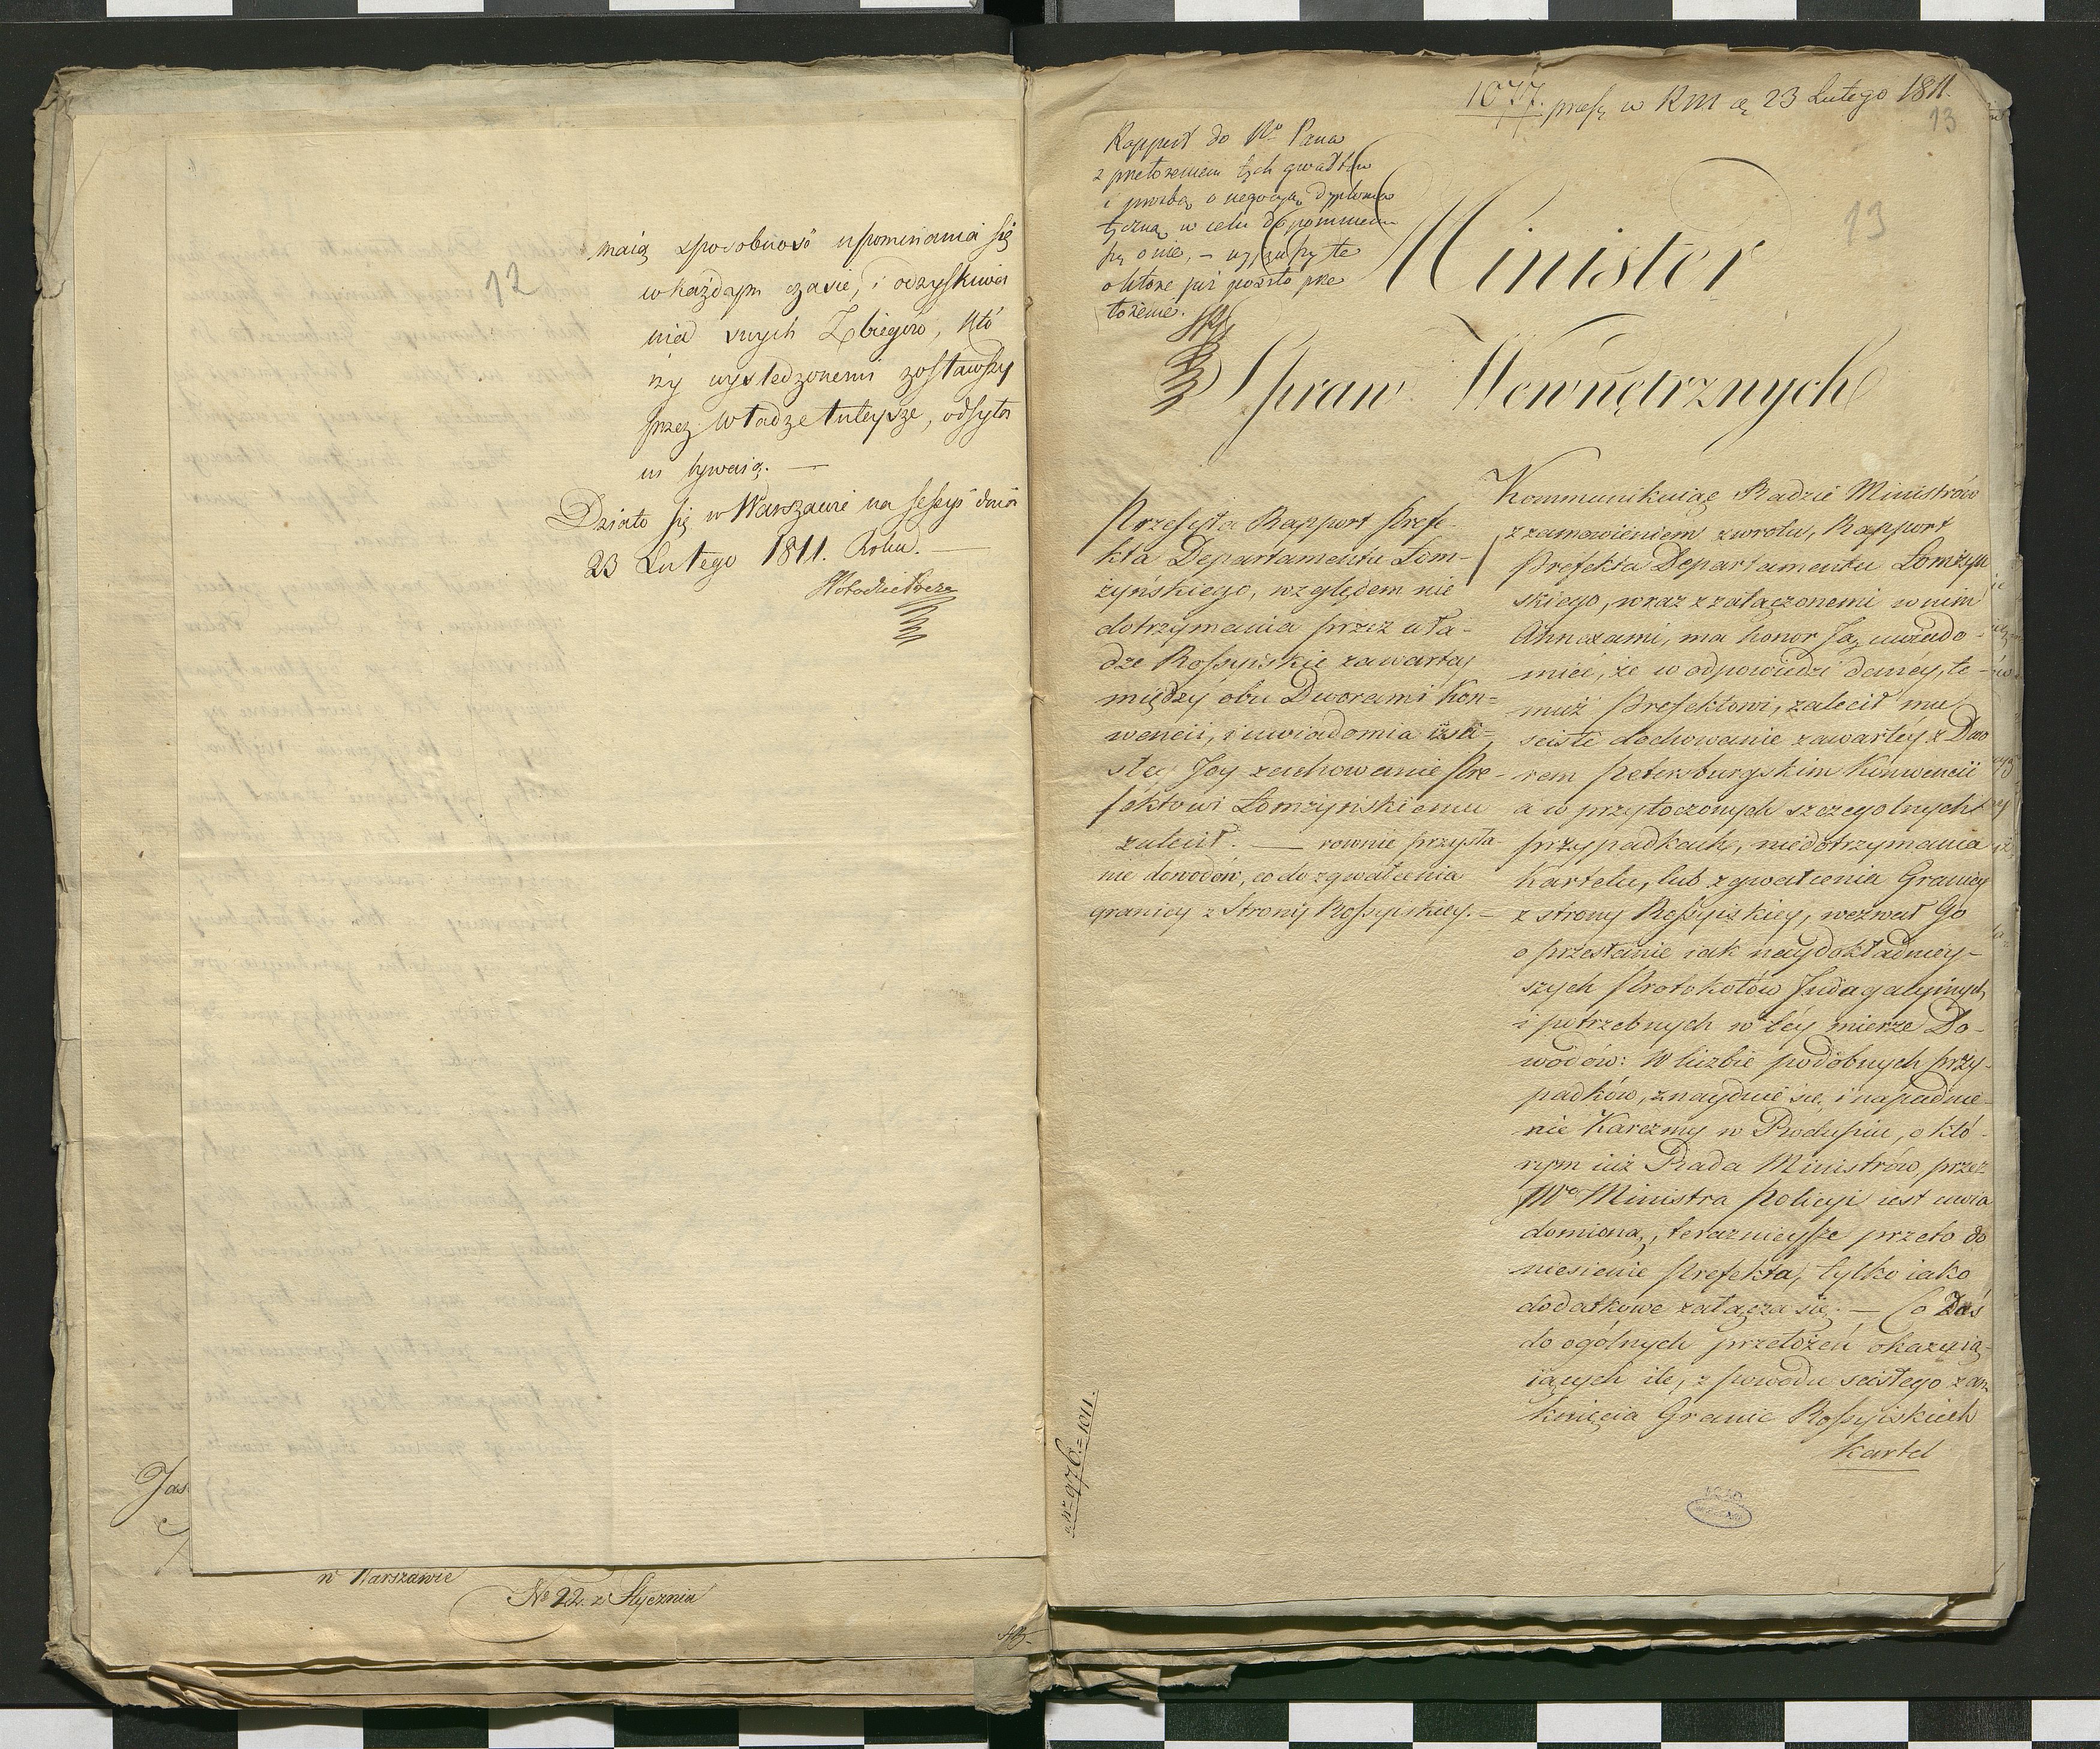 12
maią sposobność upominania się
w każdym czasie, i odzyskiwa
nia swych Zbiegów, któ
rzy wysledzonemi zostawszy
przez Władze tuteysze, odsyła
ni bywaią. —
Działo się w Warszawie na Sessyi dnia
23 Lutego 1811. Roku. —
Jas
w Warszawie
No 22. z Stycznia
1077. w RM 23 Lutego 1811.
13
13
Rapport do No Pana
z przełożeniem tych gwałtów
i prozbą o negocyą dyploma
tyczną w celu
się o nie, — te
o które już poszło prze
łożenie.
Minister
Spraw Wewnętrznych
Przesyła Rapport Prefe-
kta Departamentu Łom-
żyńskiego, względem nie
dotrzymania przez wła-
dze Rossyiskie zawartey
między obu Dworami Kon-
wencii, i uwiadomia iż ści-
słe Jey zachowanie Pre-
fektowi Łomżyńskiemu
zalecił. — rownie przysła-
nie dowodów, co do zgwałcenia
granicy z Strony Rossyiskiey. —
Kommunikuiąc Radzie Ministrów
z zamowieniem zwrotu, Rapport
Prefekta Departamentu Łomżyn
skiego, wraz z załączonemi w nim
Annexami, ma honor Ją uwiado-
mić, że w odpowiedzi daney, te-
muż Prefektowi, zalecił mu
sciste dochowanie zawartéy z Dwo
rem Petersburgskim Konwencii
a w przytoczonych szczegolnych
przypadkach, niedotrzymania
Kartelu, lub zgwałcenia Granicy
z strony Rossyiskiey, wezwał Go
o przesłanie iak naydokładniey-
szych Protokołów Indagacyinych
i potrzebnych w téy mierze Do-
wodów: W liczbie podobnych przy-
padków, znayduie się, i napadnie-
nie Karczmy w , o któ-
rym iuż Rada Ministrów, przez
Wo Ministra Policyi iest uwia
domiona, terazniejsze przeto do
niesienie Prefekta, tylko iako
dodatkowe załącza się. — Co Zaś
do ogólnych przełożeń okazuią-
iących ile, z powodu scisłego zam
knięcia Granic Rossyiskich
Kartel
No 976. = 1811.